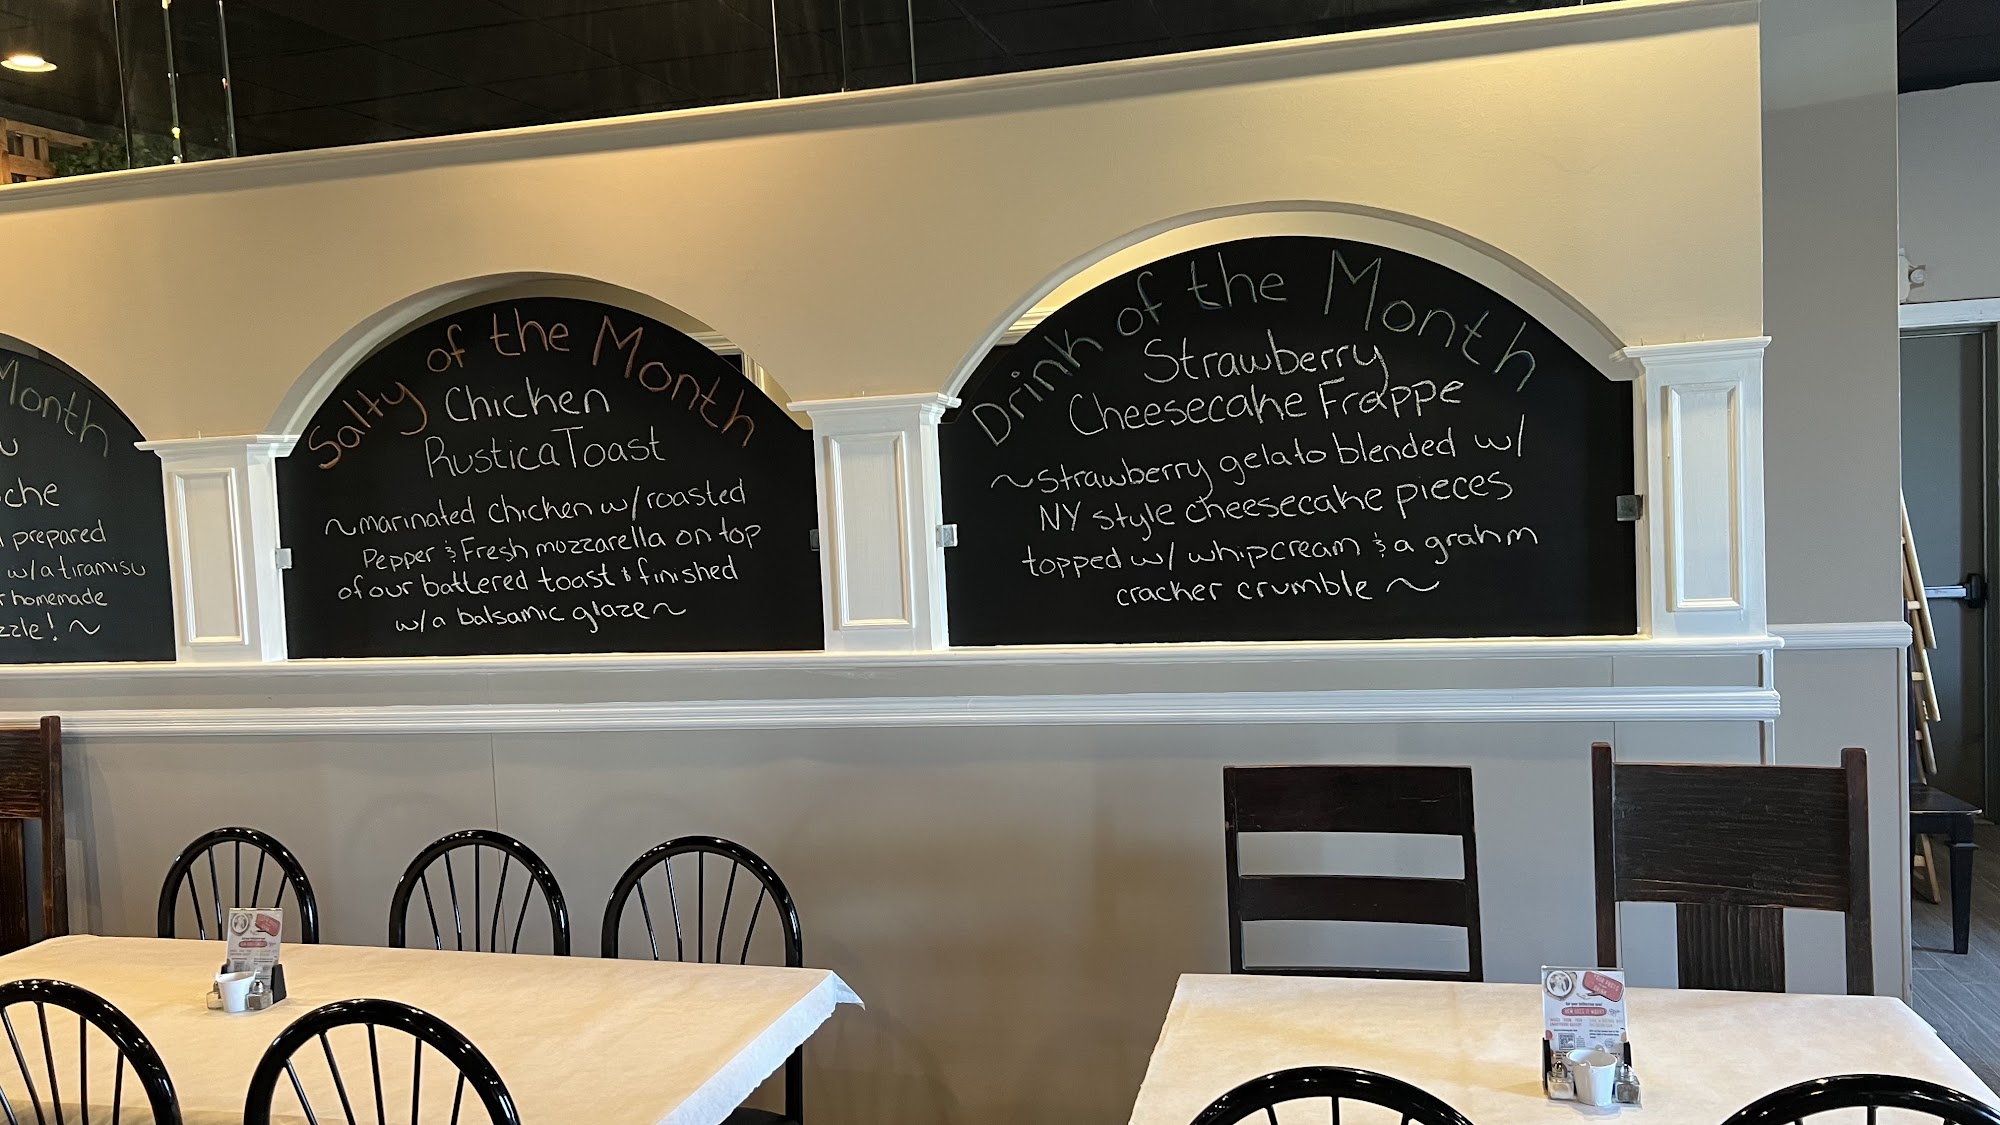 Month
che
prepared
w/a tiramisu
homemade
zzle! ~
Salty of the Month
Chicken
Rustica Toast
~marinated chicken w/roasted
Pepper & Fresh mozzarella on top
of our battered toast & finished
w/a balsamic glaze~
Drink of the Month
Strawberry
Cheesecake Frappe
~Strawberry gelato blended w/
NY style cheesecake pieces
topped w/ whipcream & a grahm
cracker crumble ~